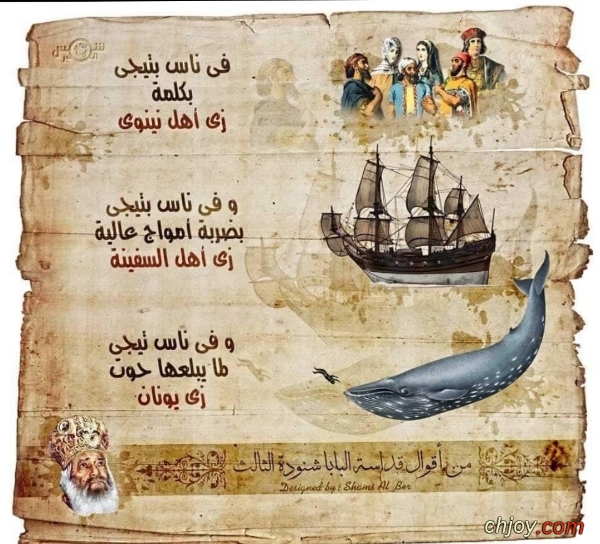 شمس
البر
فى ناس بتيجى
بكلمة
زى أهل نينوى
و فى ناس بتيجى
بضربة أمواج عالية
زى أهل السفينة
و فى ناس تيجى
لما يبلعها حوت
زى يونان
من أقوال قداسة البابا شنودة الثالث
Designed by : Shams Al Ber
chjoy.com